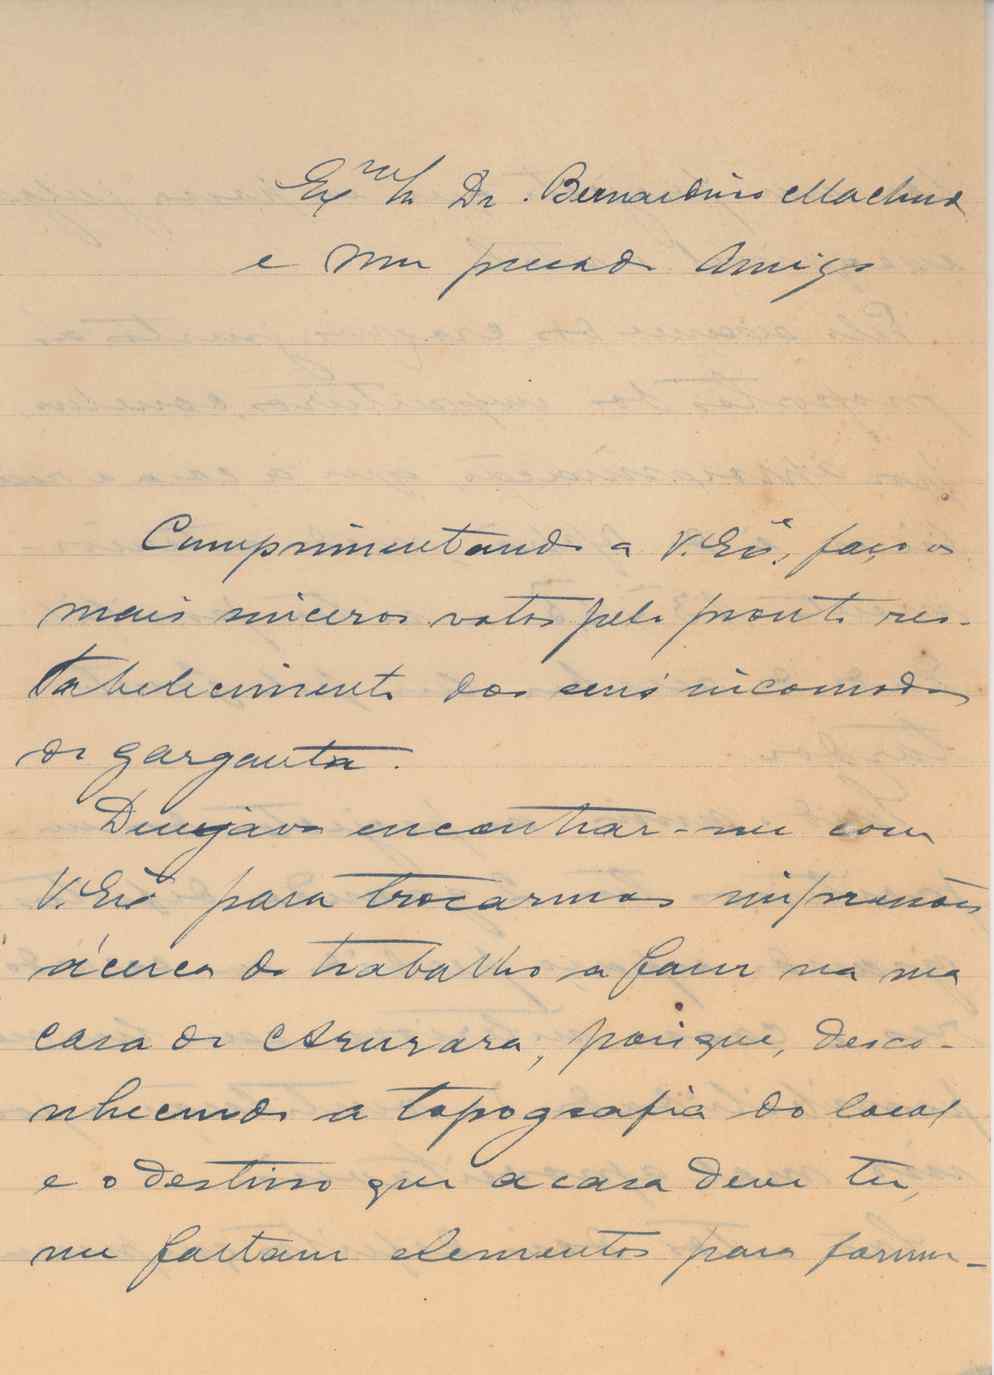 Exmo Sr. Dr. Bernardino Machado
e meu presado Amigo
Cumprimentando a V. Exª, faço os
mais sinceros votos pelo pronto res-
tabelecimento dos seus incomodos
de garganta.
Desejava encontrar-me com
V. Exª para trocarmos impressões
ácerca do trabalho a fazer na sua
casa de Arurara, porque, desco-
nhecendo a topografia do local
e o destino que a casa deve ter,
me faltam elementos para formu-